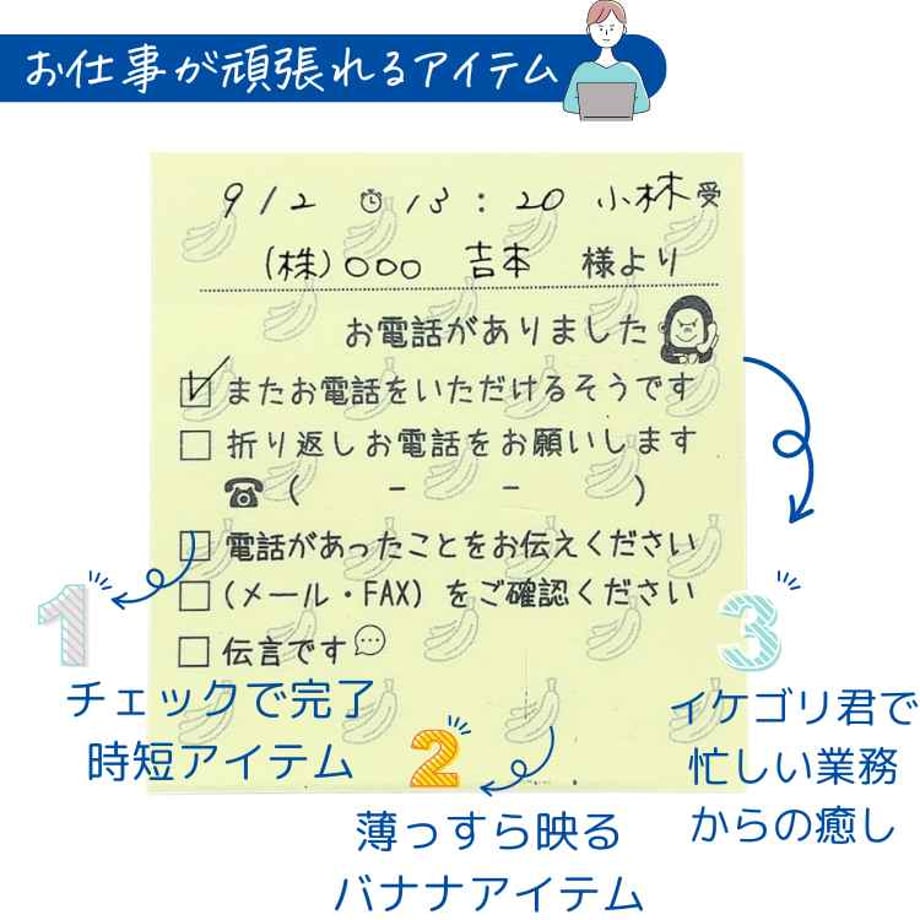 お仕事が頑張れるアイテム
9/2 13:20 小林受
(株)○○○ 吉本 様より
お電話がありました
またお電話をいただけるそうです
折り返しお電話をお願いします
( - - )
電話があったことをお伝えください
(メール・FAX) をご確認ください
伝言です
1
チェックで完了
時短アイテム
2
薄っすら映る
バナナアイテム
3
イケゴリ君で
忙しい業務
からの癒し